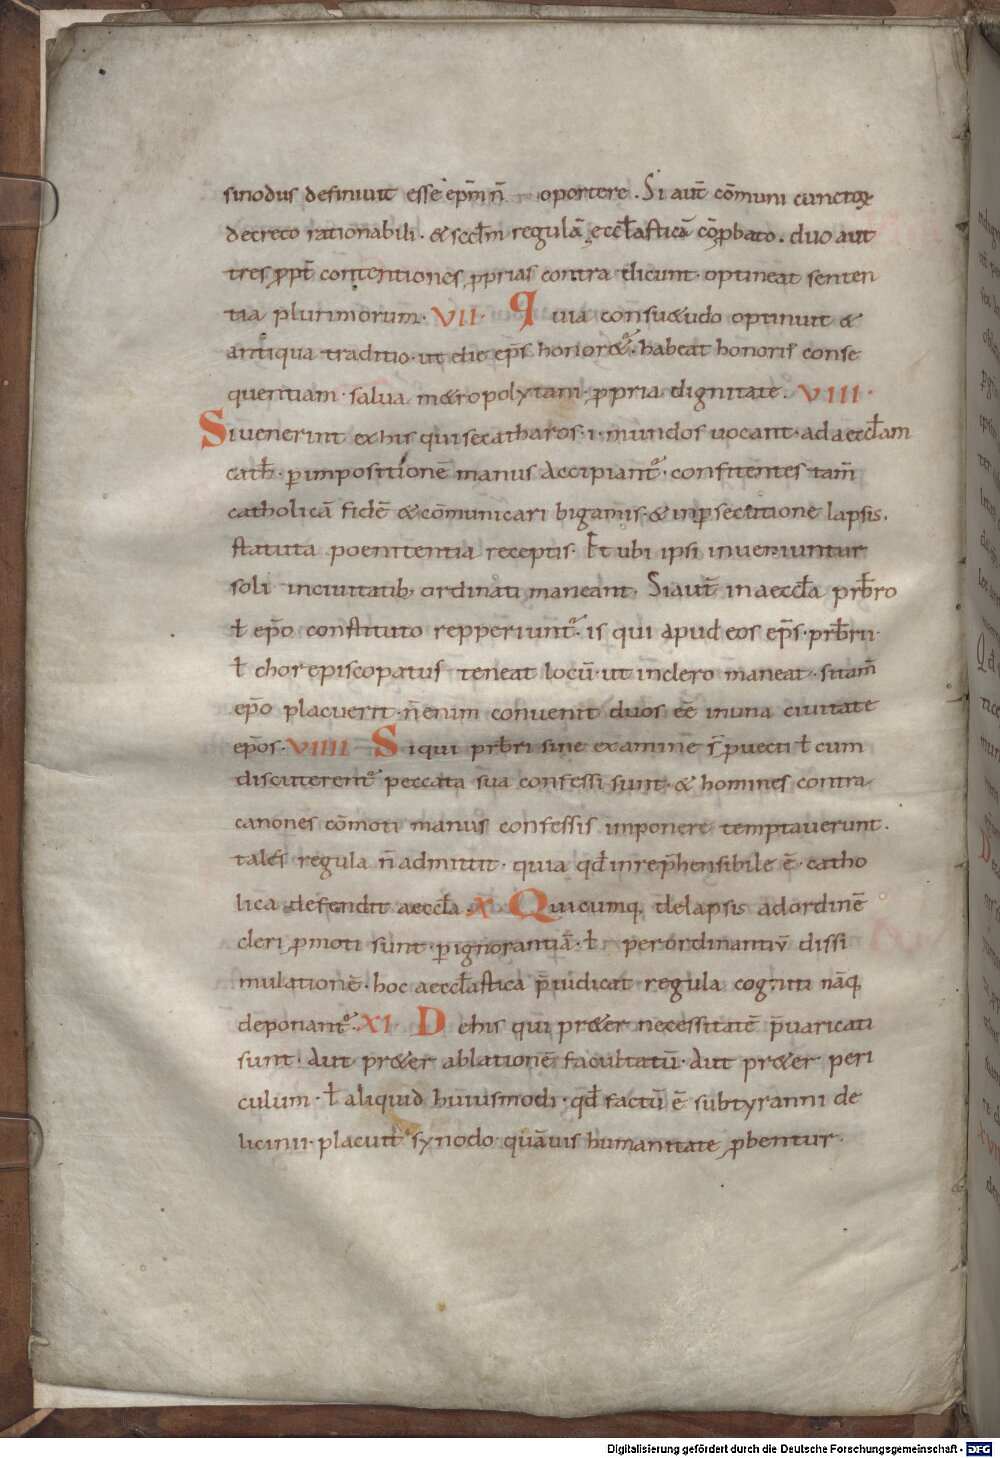 sinodus definiuit esse ep̄m n̄ oportere. Si aut̄ cōmuni cunctoꝝ
decreto rationabili. & sc̄dm regulā eccƚasticā cōꝓbato. duo aut
tres ꝓpt̄ contentiones ꝓprias contra dicunt. optineat senten
tia plurimorum. VII. Quia consu&udo optinuit &
antiqua traditio. ut elie ep̄s honor&ur. habeat honoris conse
quentiam. salua m&ropolytani ꝓpria dignitate. VIII.
Si uenerint ex his qui se catharos .i. mundos uocant. ad aeccƚam
cath̄. ꝑ impositionē manus accipiant̄. confitentes tam̄
catholicā fidē & cōmunicari bigamis. & in ꝑsecutione lapsis.
statuta poenitentia receptis. Et ubi ipsi inueniuntur
soli in ciuitatib; ordinati maneant. Si aut̄ in aeccƚa prb̄ro
ƚ ep̄o constituto repperiunt̄. is qui apud eos ep̄s. prb̄rii
ƚ chorepiscopatus teneat locū. ut in clero maneat. si tam̄
ep̄o placuerit. n̄ enim conuenit duos eē in una ciuitate
ep̄os. VIIII Si qui prb̄ri sine examine s̄ ꝓuecti ƚ cum
discuterent̄ peccata sua confessi sunt. & homines contra
canones cōmoti manus confessis imponere temptauerunt.
tales regula n̄ admittit. quia qd̄ inrep̄hensibile ē. catho
lica defendit aeccƚa. X. Quicumq; de lapsis ad ordinē
cleri ꝓmoti sunt. ꝑ ignorantiā. ƚ per ordinantiū dissi
mulationē. hoc aeccƚastica p̄iudicat regula cogniti nāq;
deponant̄. XI. De his qui pr&er necessitatē p̄uaricati
sunt. Aut pr&er ablationē facultatū. Aut pr&er peri
culum. ƚ aliquid huiusmodi. qd̄ factū ē sub tyranni de
licinii. placuit synodo. quāuis humanitate ꝓbentur.
Digitalisierung gefördert durch die Deutsche Forschungsgemeinschaft - DFG